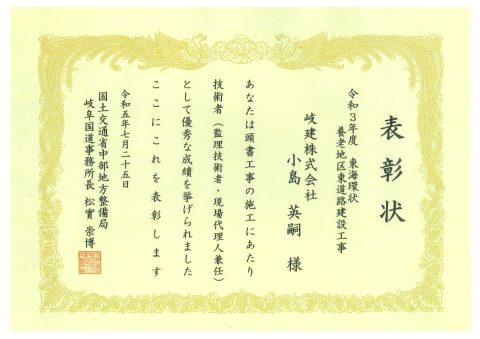 表彰状
令和3年度　東海環状
養老地区東道路建設工事
岐建株式会社
小島　英嗣　様
あなたは頭書工事の施工にあたり
技術者（監理技術者・現場代理人兼任）
として優秀な成績を挙げられました
ここにこれを表彰します
令和五年七月二十五日
国土交通省中部地方整備局
岐阜国道事務所長　松實　崇博